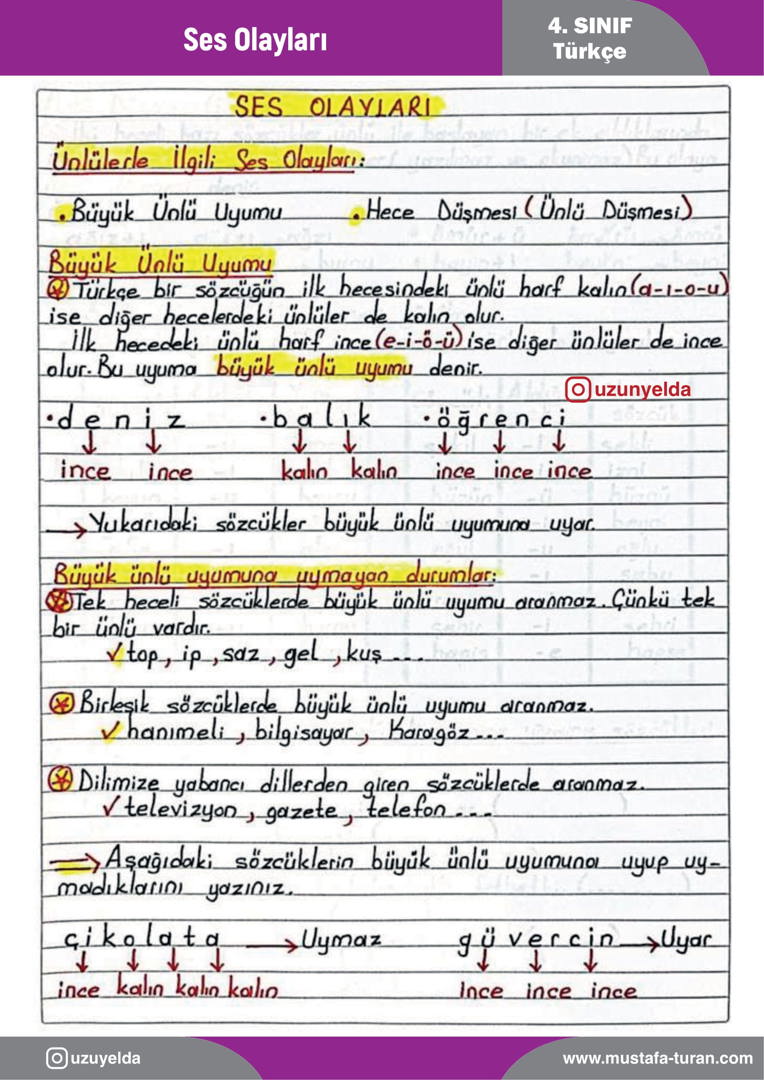 Ses Olayları
4. SINIF
Türkçe
SES OLAYLARI
Ünlülerle İlgili Ses Olayları:
• Büyük Ünlü Uyumu • Hece Düşmesi (Ünlü Düşmesi)
Büyük Ünlü Uyumu
Türkçe bir sözcüğün ilk hecesindeki ünlü harf kalın (a-ı-o-u)
ise diğer hecelerdeki ünlüler de kalın olur.
İlk hecedeki ünlü harf ince (e-i-ö-ü) ise diğer ünlüler de ince
olur. Bu uyuma büyük ünlü uyumu denir.
uzunyelda
• deniz • balık • öğrenci
ince ince kalın kalın ince ince ince
→ Yukarıdaki sözcükler büyük ünlü uyumuna uyar.
Büyük ünlü uyumuna uymayan durumlar:
Tek heceli sözcüklerde büyük ünlü uyumu aranmaz. Çünkü tek
bir ünlü vardır.
✓ top, ip, saz, gel, kuş ...
Birleşik sözcüklerde büyük ünlü uyumu aranmaz.
✓ hanımeli, bilgisayar, Karagöz ...
Dilimize yabancı dillerden giren sözcüklerde aranmaz.
✓ televizyon, gazete, telefon ...
→ Aşağıdaki sözcüklerin büyük ünlü uyumuna uyup uy-
madıklarını yazınız.
çikolata → Uymaz güvercin → Uyar
ince kalın kalın kalın ince ince ince
uzuyelda
www.mustafa-turan.com